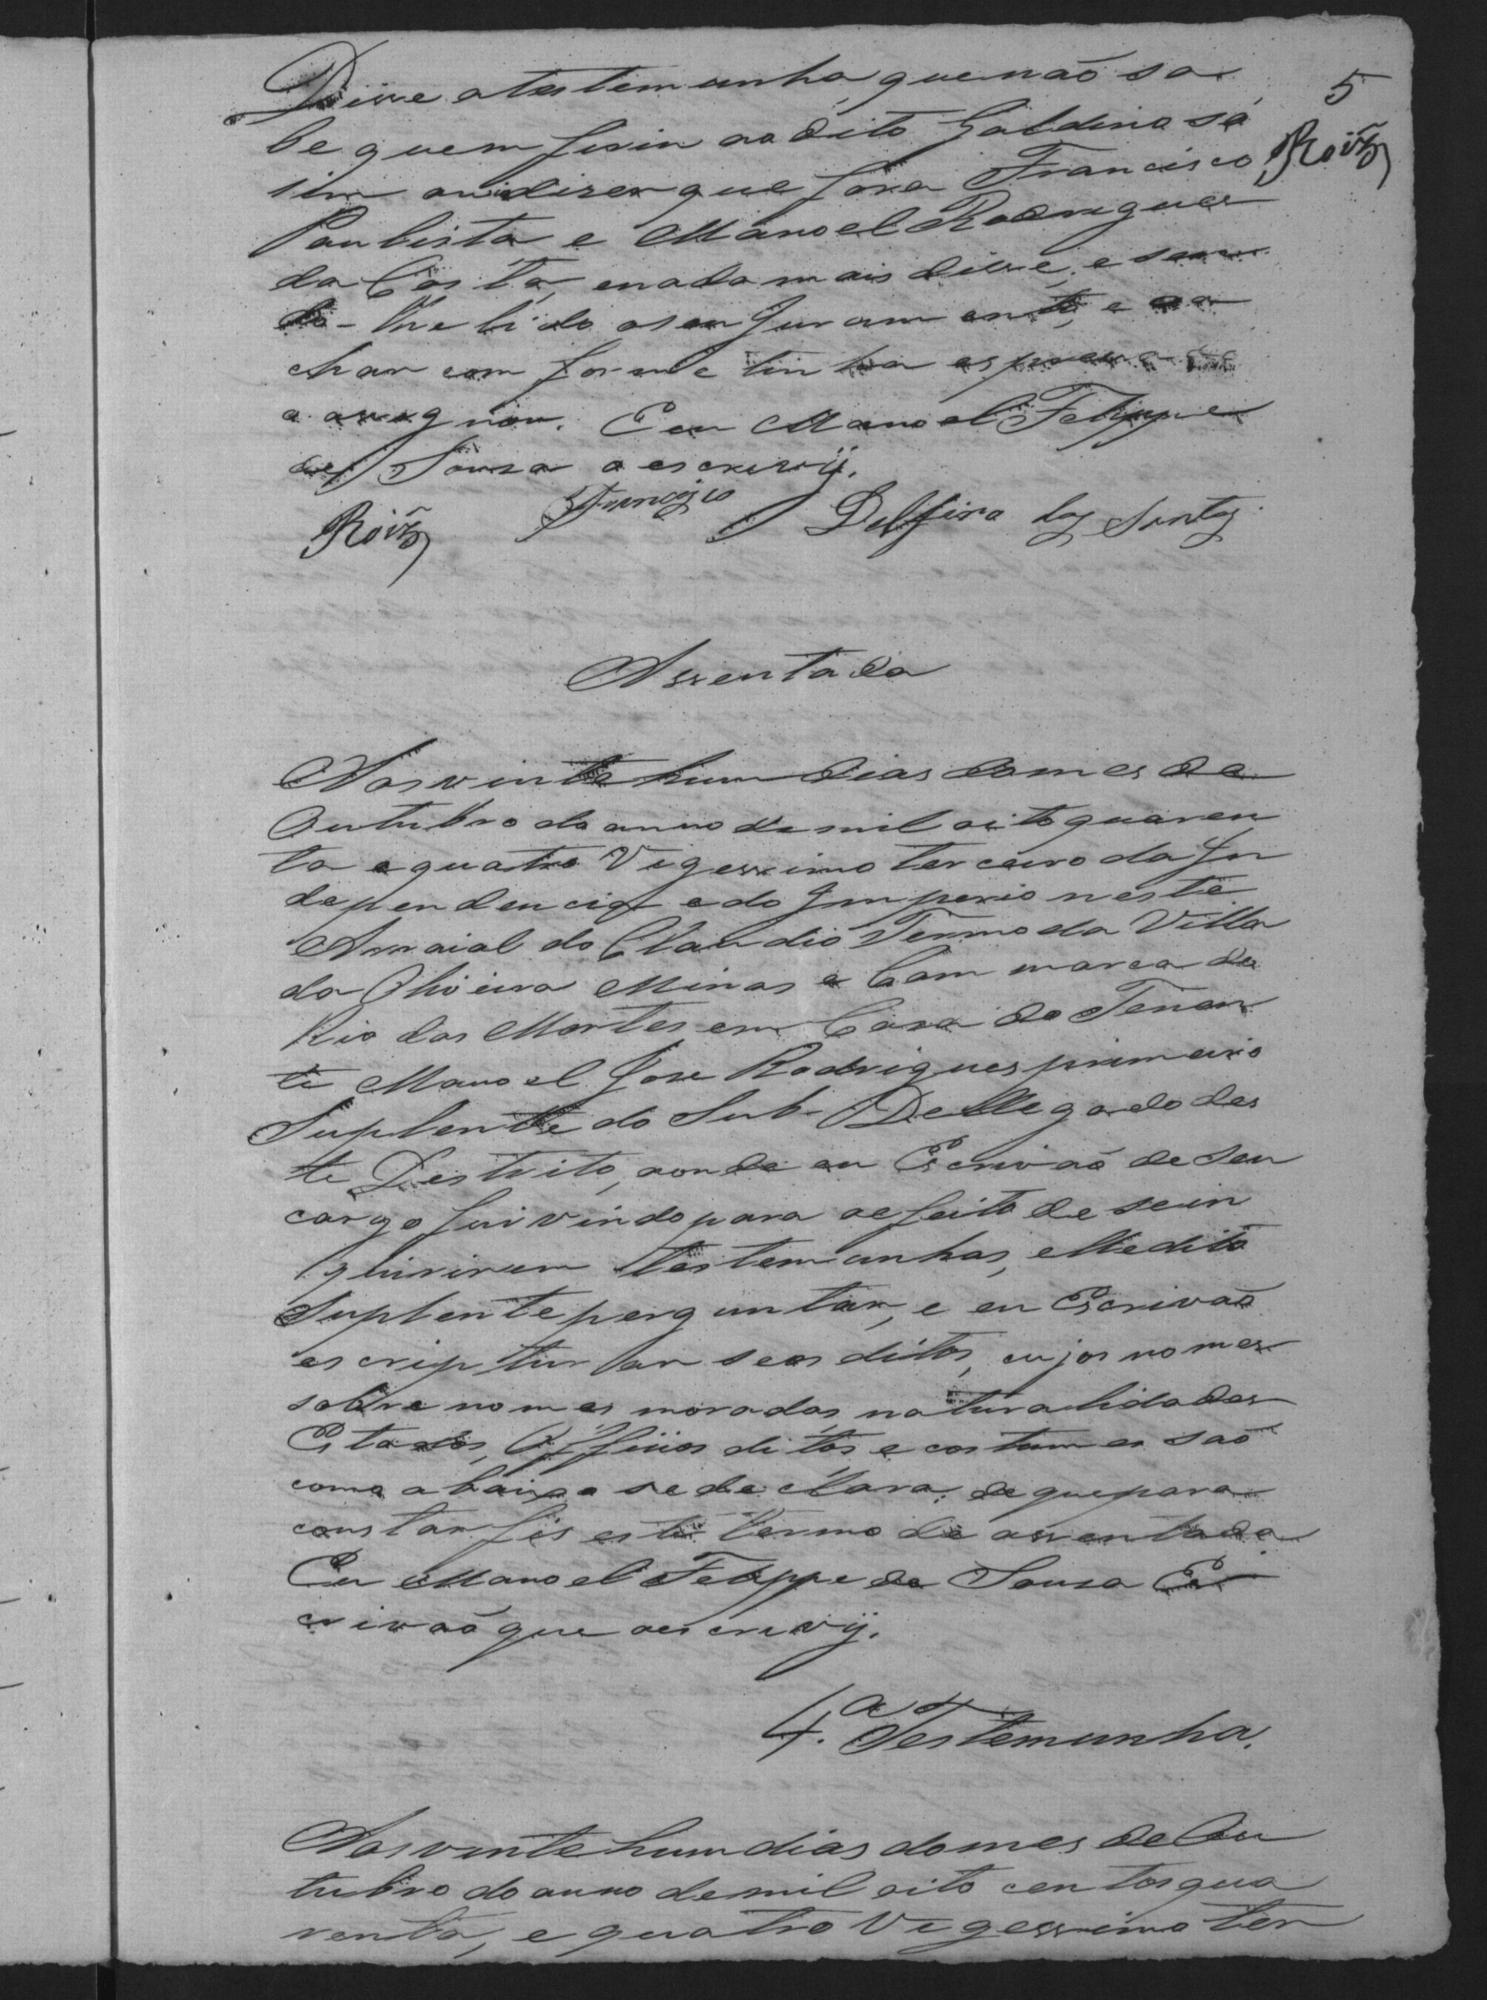 5
Roiz
Disse a testemunha que não sa
be quem ferin ao dito Galdino só
sim ouvi dizer que fora Francisco
Paulista e Manoel Rodrigues
da Costa, e nada mais disse, e sen
do-lhe lido o seu Juramento, e o a
char com forme tinha esposto
o assignou. Eu Manoel Felippe
de Sousa o escrevij.
Roiz Francisco Delfino dos Santos
Assentada
Aos vinte hum dias do mes de
Outubro do anno de mil oito quaren
ta e quatro Vigessimo terceiro da In
dependencia e do Imperio neste
Arraial do Claudio Termo da Villa
da Oliveira Minas e Com marca do
Rio das Mortes em Casa do Tenen
te Manoel Jose Rodrigues primeiro
Suplente do Sub-Dellegado des
te Destrito, aonde eu Escrivaõ de seu
cargo fui vindo para o efeito de se in
quirirem testemunhas, elle dito
Suplente perguntar, e eu Escrivaõ
escripturar seos dittos, cujos nomes
sobre nomes moradas naturalidades
Estados, Officios dittos e costumes saõ
como abaixo se declara; de que para
constar fis este termo de assentada
Eu Manoel Felippe de Sousa Es
crivaõ que o escrevij.
4.a Testemunha.
Aos vinte hum dias do mes de Ou
tubro do anno de mil oito centos qua
renta, e quatro Vigessimo ter